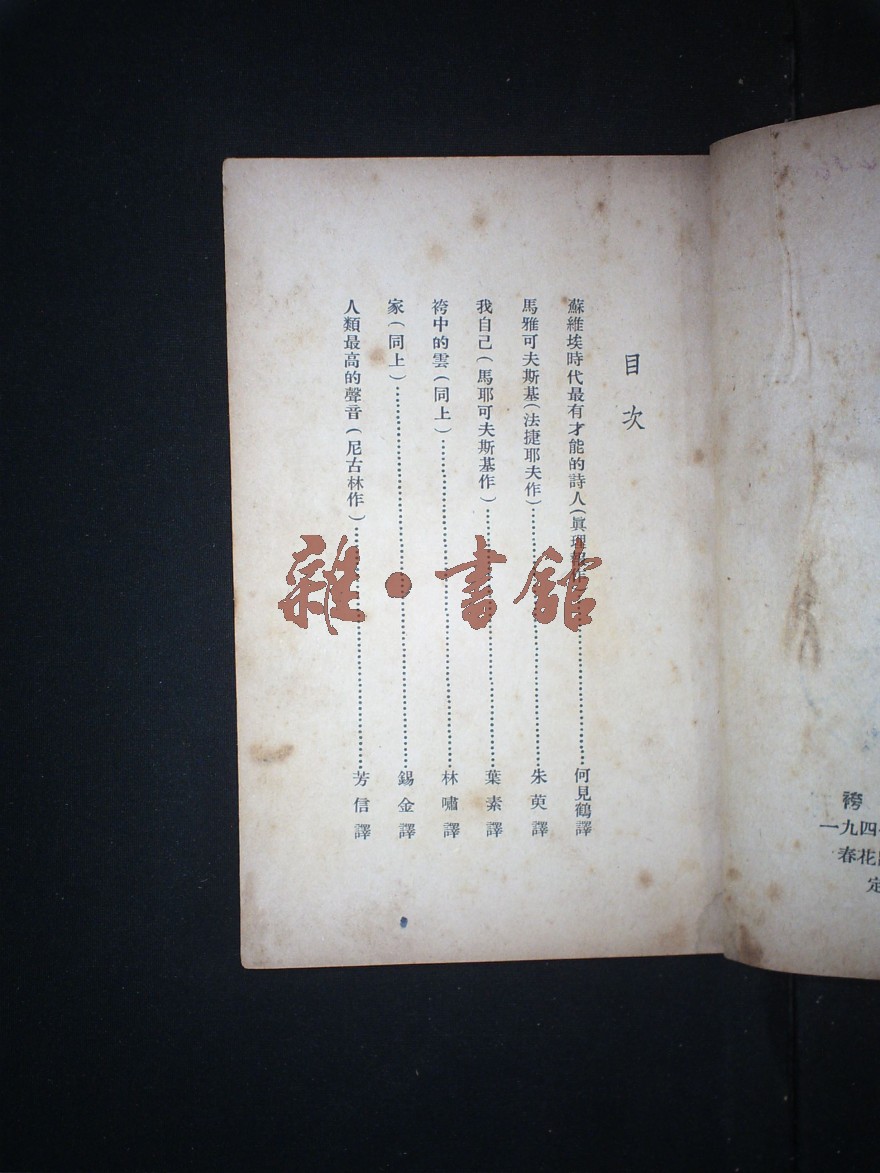 目次
蘇維埃時代最有才能的詩人(眞理報作)……何見鶴譯
馬雅可夫斯基(法捷耶夫作)……朱萸譯
我自己(馬耶可夫斯基作)……葉素譯
袴中的雲(同上)……林嘯譯
家(同上)……錫金譯
人類最高的聲音(尼古林作)……芳信譯
雜·書館
袴
一九四
春花
定